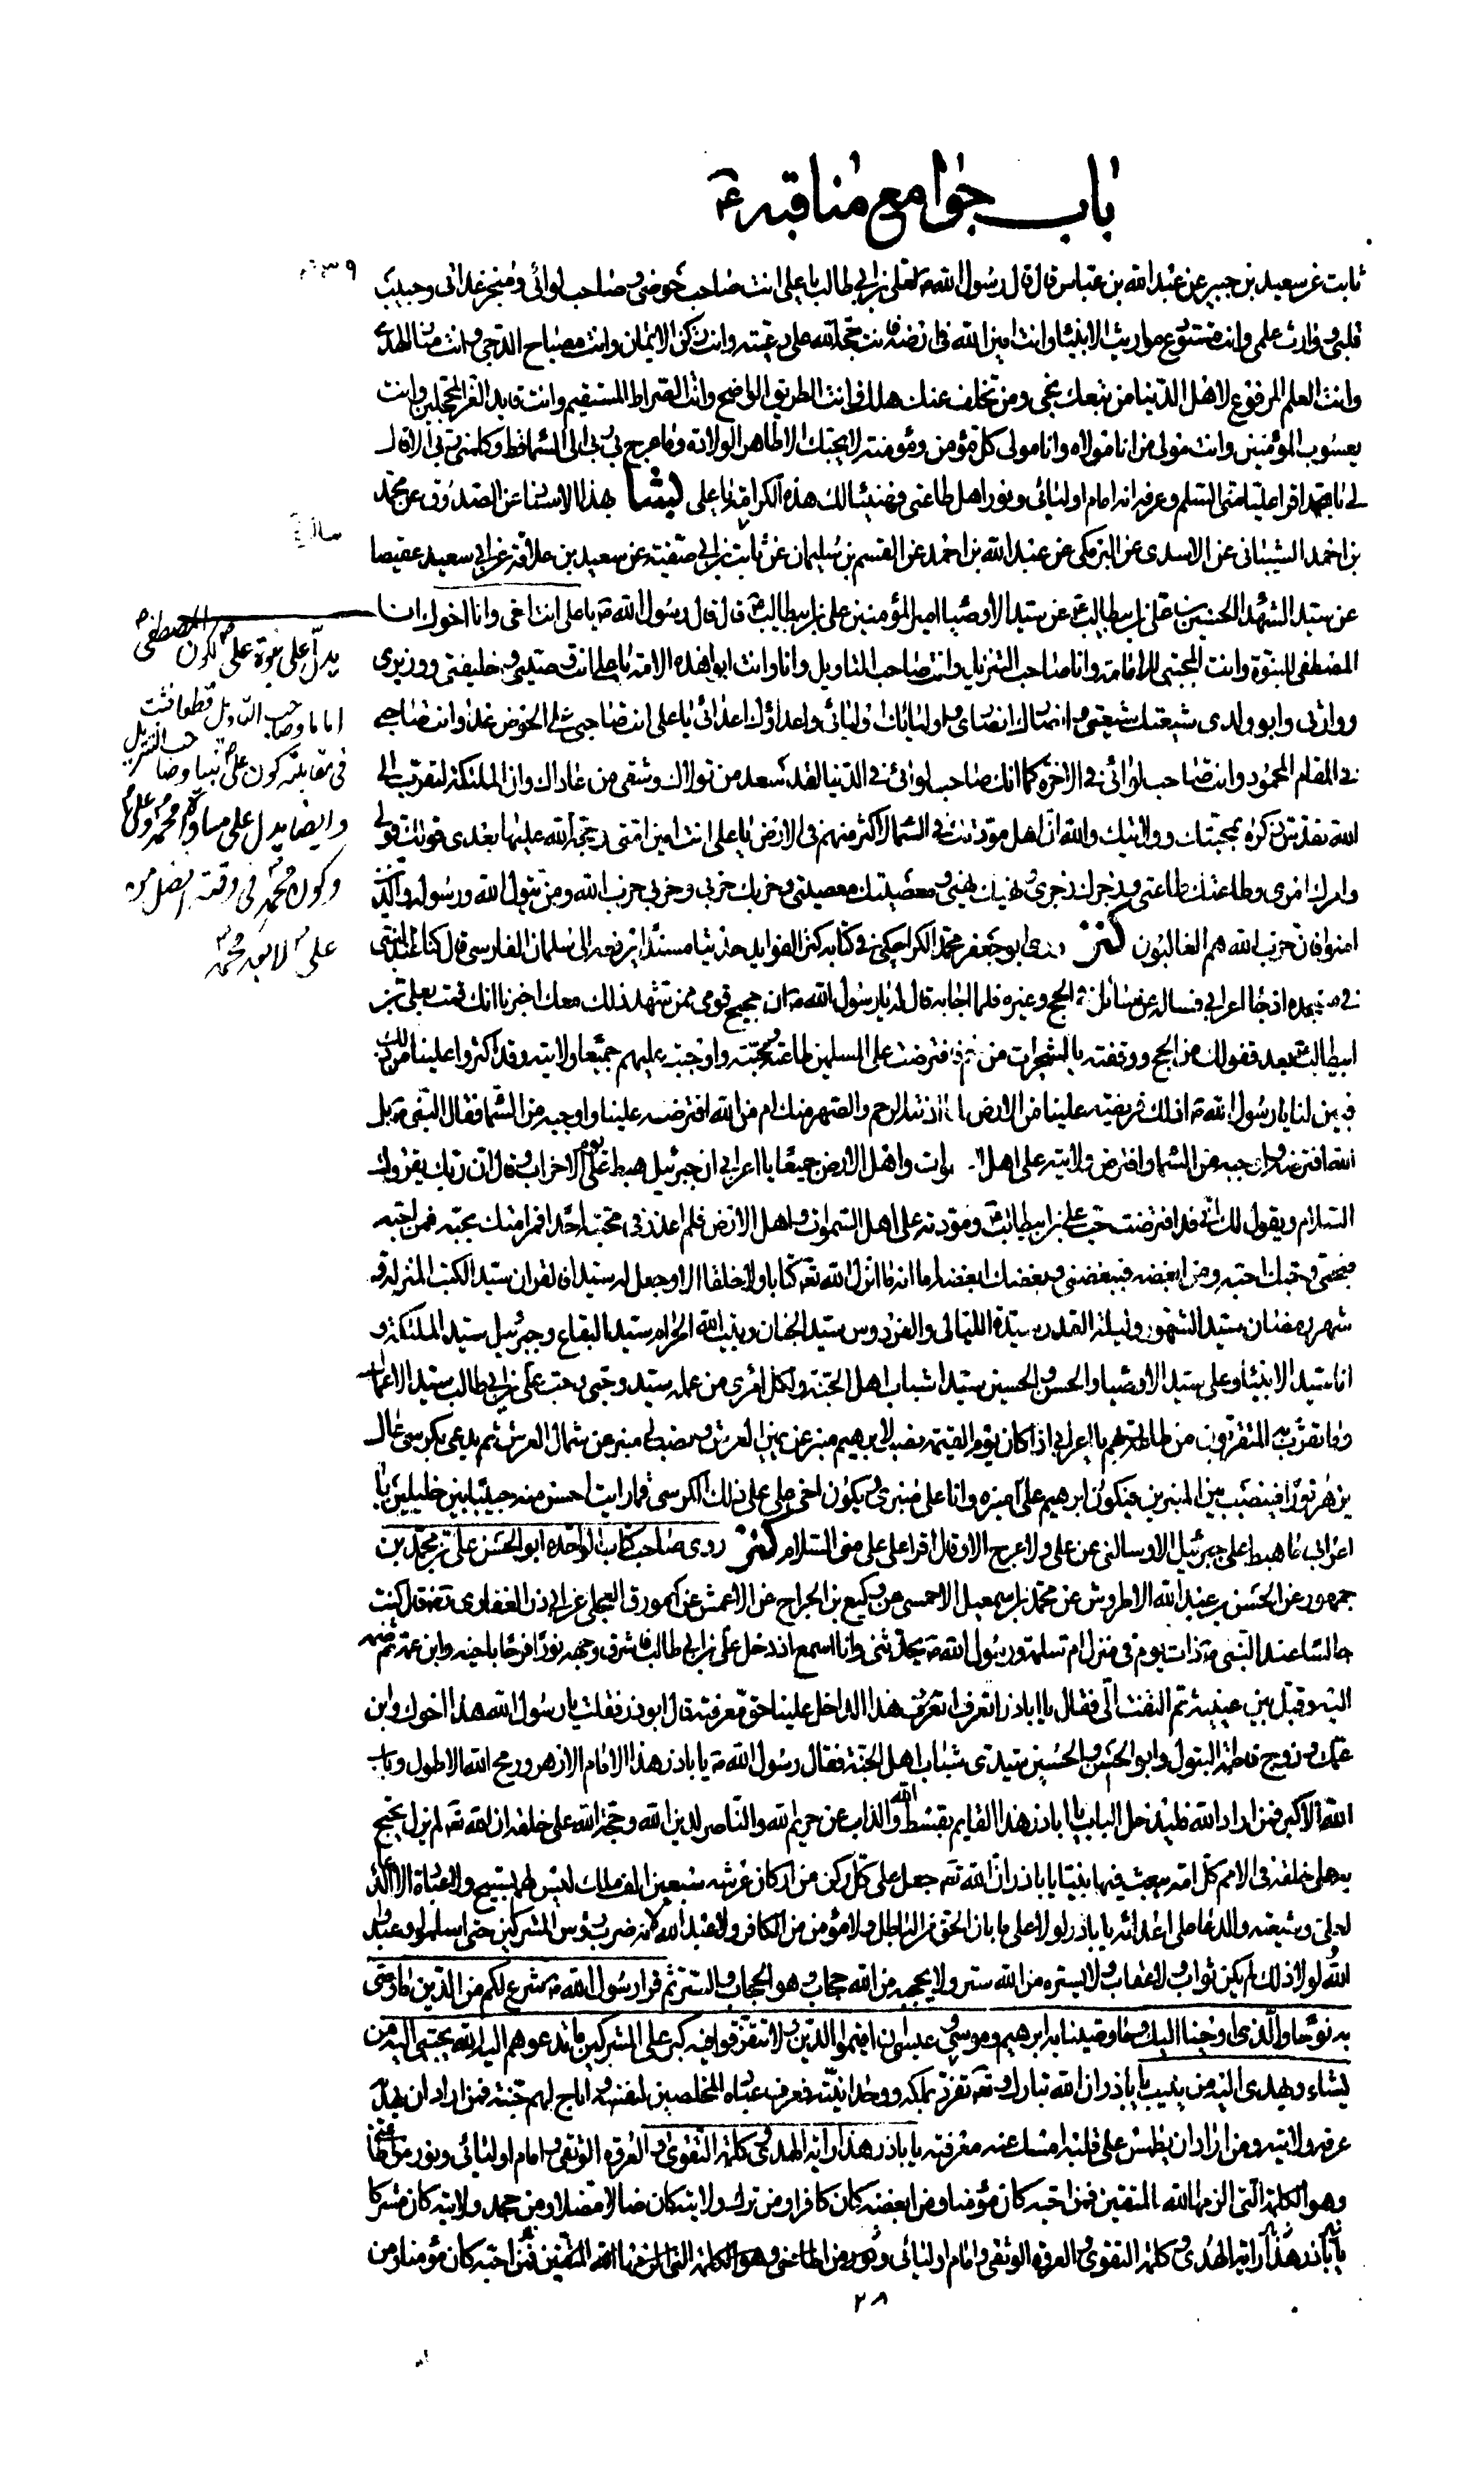 باب جوامع مناقبه ع
٤٣٩
ثابت عن سعيد بن جبير عن عبد الله بن عباس قال قال رسول الله ص لعلي بن ابي طالب يا علي انت صاحب حوضي وصاحب لوائي ومنجز عداتي وحبيب
قلبي ووارث علمي وانت مستودع مواريث الانبياء وانت امين الله في ارضه وانت حجة الله على بريته وانت ركن الايمان وانت مصباح الدجى وانت منار الهدى
وانت العلم المرفوع لاهل الدنيا من تبعك نجى ومن تخلف عنك هلك وانت الطريق الواضح وانت الصراط المستقيم وانت قايد الغر المحجلين وانت
يعسوب المؤمنين وانت مولى من انا مولاه وانا مولى كل مؤمن ومؤمنة لا يحبك الا طاهر الولادة وما عرج بي ربي الى السماء قط وكلمني ربي الا قال
لي يا محمد اقرا عليا مني السلم وعرفه انه امام اوليائي ونور اهل طاعتي فهنيئا لك هذه الكرامة يا علي بشا هذا الاسناد عن الصدوق عن محمد
بن احمد الشيباني عن الاسدي عن البرمكي عن عبد الله بن احمد عن القسم بن سليمان عن ثابت بن ابي صفية عن سعيد بن علاقة عن ابي سعيد عقيصا
عن سيد الشهداء الحسين بن علي بن ابيطالب ع عن سيد الاوصيا امير المؤمنين علي بن ابيطالب ع قال قال رسول الله ص يا علي انت اخي وانا اخوك انا
المصطفى للنبوة وانت المجتبى للامامة وانا صاحب التنزيل وانت صاحب التاويل وانا وانت ابوا هذه الامة يا علي انت وصيي وخليفتي ووزيري
ووارثي وابو ولدي شيعتك شيعتي وانصارك انصاري واولياؤك اوليائي واعداؤك اعدائي يا علي انت صاحبي على الحوض غدا وانت صاحبي
في المقام المحمود وانت صاحب لوائي في الاخرة كما انك صاحب لوائي في الدنيا لقد سعد من تولاك وشقي من عاداك وان الملئكة لتقرب الى
الله تقدس ذكره بمحبتك وولايتك والله ان اهل مودتك في السماء لاكثر منهم في الارض يا علي انت امين امتي وحجة الله عليها بعدي قولك قولي
وامرك امري وطاعتك طاعتي وزجرك زجري ونهيك نهيي ومعصيتك معصيتي وحزبك حزبي وحزبي حزب الله ومن يتول الله ورسوله والذين
امنوا فان حزب الله هم الغالبون كنز روى ابو جعفر محمد الكراجكي في كتابه كنز الفوايد حديثا مسندا يرفعه الى سلمان الفارسي قال كنا عند النبي
في مسجده اذ جا اعرابي فساله عن مسائل في الحج وغيره فلما اجابه قال له يا رسول الله ص ان حجيج قومي ممن شهد ذلك معك اخبرنا انك قمت بعلي بن
ابيطالب ع بعد قفولك من الحج ووقفته بالشجرات من خم فافترضت على المسلمين طاعته ومحبته واوجبت عليهم جميعا ولايته وقد اكثروا علينا من ذلك
فبين لنا يا رسول الله ص اذلك فريضة علينا من الارض لما ادنته الرحم والصهر منك ام من الله افترضه علينا واوجبه من السما فقال النبي ص بل
الله افترضه واوجبه من السما وافترض ولايته على اهل السموات واهل الارض جميعا يا اعرابي ان جبرئيل هبط علي يوم الاحزاب وقال ان ربك يقرؤك
السلام ويقول لك اني قد افترضت حب علي بن ابيطالب ع ومودته على اهل السموات واهل الارض فلم اعذر في محبته احدا فمر امتك بحبه فمن احبه
فبحبي وحبك احبه ومن ابغضه فببغضي وبغضك ابغضه اما انه ما انزل الله تع كتابا ولا خلقا الا وجعل له سيدا فالقران سيد الكتب المنزلة و
شهر رمضان سيد الشهور وليلة القدر سيدة الليالي والفردوس سيد الجنان وبيت الله الحرام سيد البقاع وجبرئيل سيد الملئكة و
انا سيد الانبياء وعلي سيد الاوصيا والحسن والحسين سيدا شباب اهل الجنة ولكل امرئ من عمله سيد وحبي وحب علي بن ابي طالب سيد الاعمال
وما تقرب به المتقربون من طاعة ربهم يا اعرابي اذا كان يوم القيمة نصب لابرهيم منبر عن يمين العرش ونصب لي منبر عن شمال العرش ثم يدعى بكرسي عال
يزهر نورا فينصب بين المنبرين فيكون ابرهيم على منبره وانا على منبري ويكون اخي علي على ذلك الكرسي فما رايت احسن منه حبيبا بين خليلين يا
اعرابي ما هبط علي جبرئيل الا وسالني عن علي ولا عرج الا وقال اقرا على علي مني السلام كنز روى صاحب كتاب الواحدة ابو الحسن علي بن محمد بن
جمهور عن الحسن بن عبد الله الاطروش عن محمد بن اسمعيل الاحمسي عن وكيع بن الجراح عن الاعمش عن مورق العجلي عن ابي ذر الغفاري ره قال كنت
جالسا عند النبي ص ذات يوم في منزل ام سلمة ورسول الله ص يحدثني وانا اسمع اذ دخل علي بن ابي طالب فاشرق وجهه نورا فرحا باخيه وابن عمه ثم ضمه
اليه وقبل بين عينيه ثم التفت الي فقال يا ابا ذر اتعرف هذا الداخل علينا حق معرفته قال ابو ذر فقلت يا رسول الله هذا اخوك وابن
عمك وزوج فاطمة البتول وابو الحسن والحسين سيدي شباب اهل الجنة فقال رسول الله ص يا با ذر هذا الامام الازهر ورمح الله الاطول وباب
الله الاكبر فمن اراد الله فليدخل الباب يا ابا ذر هذا القايم بقسط الله والذاب عن حريم الله والناصر لدين الله وحجة الله على خلقه ان الله تع لم يزل يحتج
به على خلقه في الامم كل امة يبعث فيها نبيا يا با ذر ان الله تع جعل على كل ركن من اركان عرشه سبعين الف ملك ليس لهم تسبيح ولا عبادة الا الدعا
لعلي وشيعته والدعا على اعدائه يا با ذر لولا علي ما بان الحق من الباطل ولا مؤمن من الكافر ولا عبد الله لانه ضرب رؤس المشركين حتى اسلموا وعبدوا
الله لولا ذلك لم يكن ثواب ولا عقاب ولا يستره من الله ستر ولا يحجبه من الله حجاب وهو الحجاب والستر ثم قرا رسول الله ص شرع لكم من الدين ما وصى
به نوحا والذي اوحينا اليك وما وصينا به ابرهيم وموسى وعيسى ان اقيموا الدين ولا تتفرقوا فيه كبر على المشركين ما تدعوهم اليه الله يجتبي اليه من
يشاء ويهدي اليه من ينيب يا با ذر ان الله تبارك وتع تفرد بملكه ووحدانيته فعرف عباده المخلصين لنفسه واباح لهم جنته فمن اراد ان يهديه
عرفه ولايته ومن اراد ان يطمس على قلبه امسك عنه معرفته يا با ذر هذا راية الهدى وكلمة التقوى والعروة الوثقى وامام اوليائي ونور من اطاعني
وهو الكلمة التي الزمها الله المتقين فمن احبه كان مؤمنا ومن ابغضه كان كافرا ومن ترك ولايته كان ضالا مضلا ومن جحد ولايته كان مشركا
يا با ذر هذا راية الهدى وكلمة التقوى والعروة الوثقى وامام اوليائي ونور من اطاعني وهو الكلمة التي الزمها الله المتقين فمن احبه كان مؤمنا ومن
٢٨
يدل على نبوة علي كون المصطفى
اماما وصاحب التاويل قطعا فثبت
في مقابلته كون علي نبيا وصاحب التنزيل
وايضا يدل على مساواة محمد وعلي
وكون محمد في وقته افضل من
علي لا بعد محمد